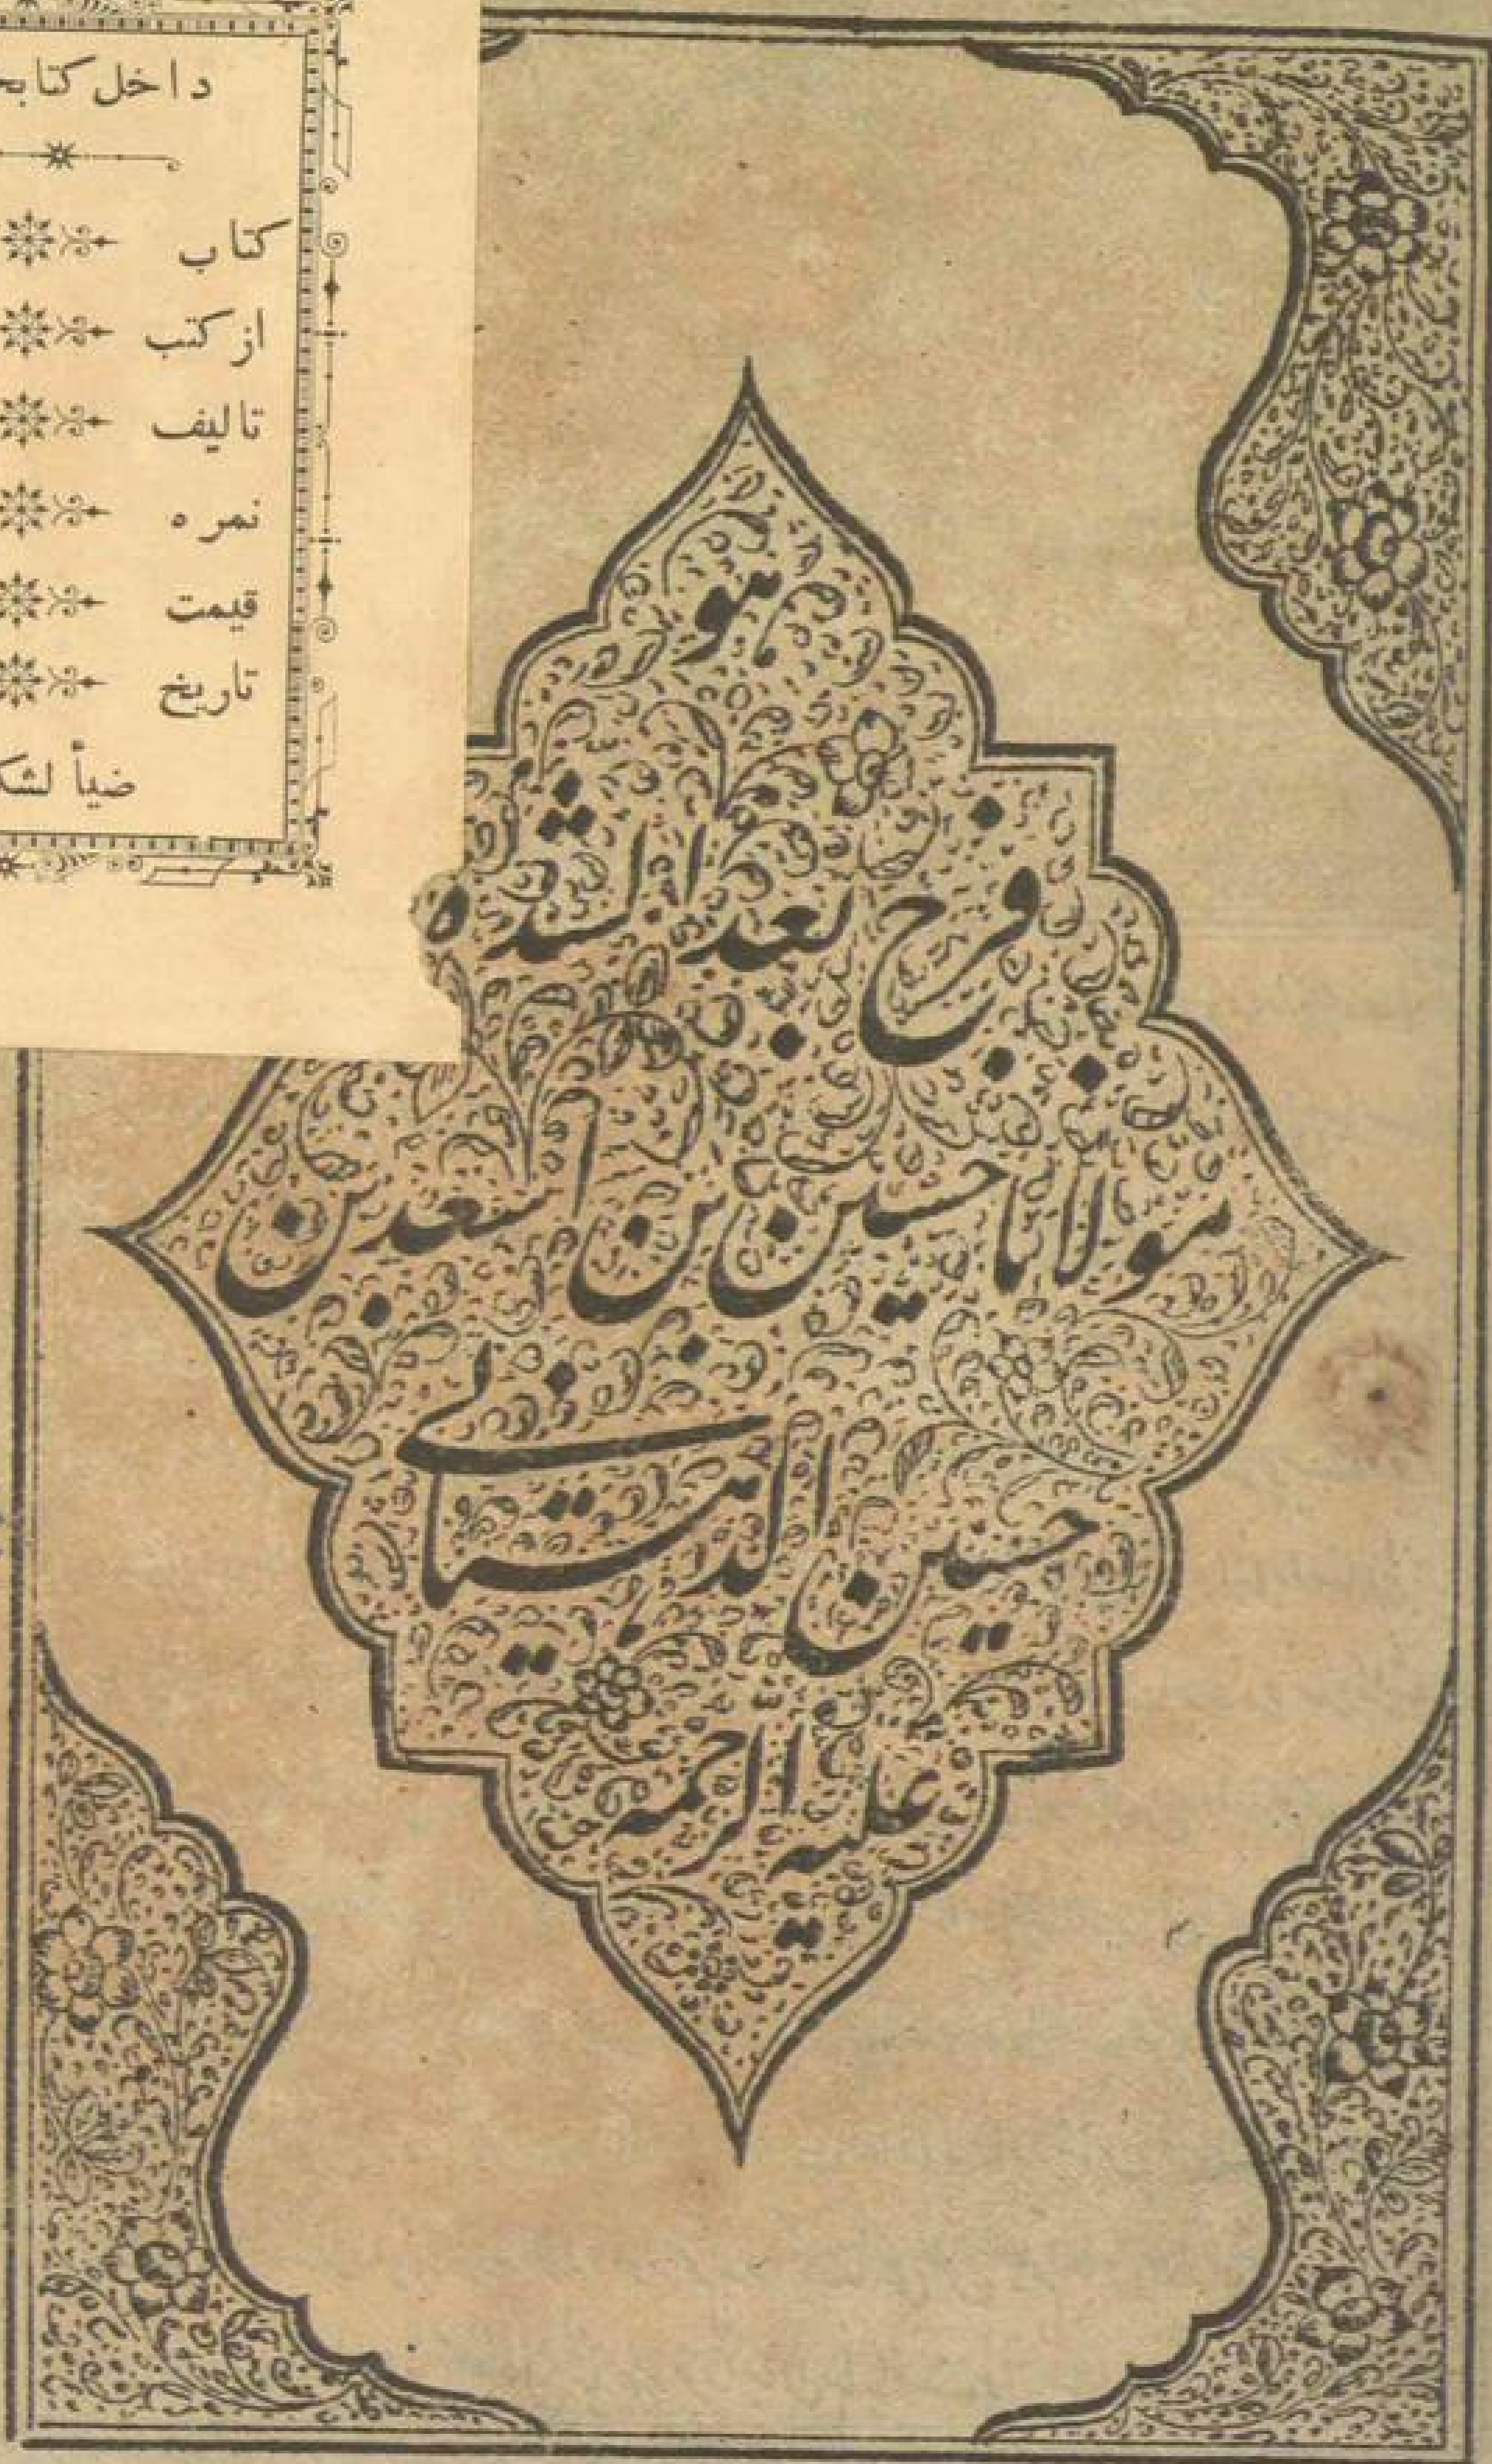 داخل
کتاب
از کتب
تالیف
نمره
قیمت
تاریخ
ضیأ
هو
فرج بعد الشده
مولانا حسین بن اسعد بن
حسین الدهستانی
علیه الرحمه